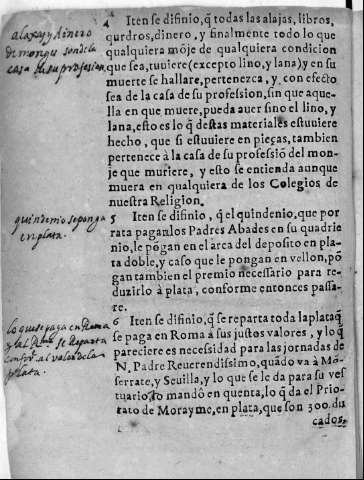 4 Iten se difinio, q̃ todas las alajas, libros,
qurdros, dinero, y finalmente todo lo que
qualquiera mõje de qualquiera condicion
que sea, tuuiere (excepto lino, y lana) y en su
muerte se hallare, pertenezca, y con efecto
sea de la casa de su profession, sin que aque-
lla en que muere, pueda auer sino el lino, y
lana, esto es lo q̃ destas materiales estuuiere
hecho, que si estuuiere en pieças, tambien
pertenece à la casa de su professiõ del mon-
je que muriere, y esto se entienda aunque
muera en qualquiera de los Colegios de
nuestra Religion.
alaxas y dinero
de monges son de la
casa de su profesion
5 Iten se difinio, q̃ el quindenio, que por
rata pagan los Padres Abades en su quadrie
nio, le põgan en el arca del deposito en pla-
ta doble, y caso que le pongan en vellon, põ
gan tambien el premio necessario para re-
duzirlo à plata, conforme entonces passa-
re.
quindenio se ponga
en plata.
6 Iten se difinio, q̃ se reparta toda la plata q̃
se paga en Roma à sus justos valores, y lo q̃
pareciere es necessidad para las jornadas de
N. Padre Reuerendissimo, quãdo va à Mõ
serrate, y Seuilla, y lo que se le da para su ves
tuario, lo mandõ en quenta, lo q̃ da el Prio-
rato de Morayme, en plata, que son 300. du
cados,
lo que se paga en Roma
se reparta
al valor de la
plata.